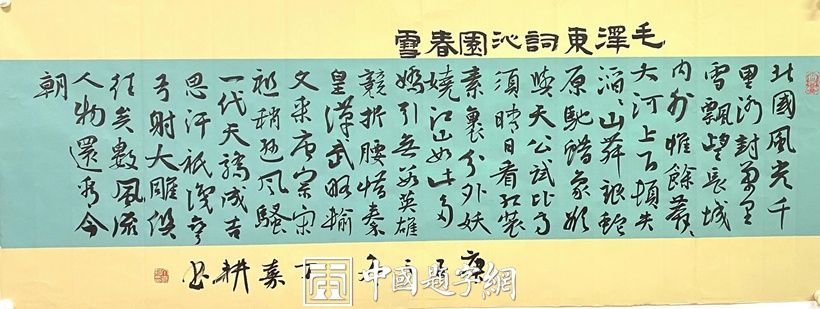 毛澤東詞沁園春雪
北國風光千
里冰封萬里
雪飄望長城
内外惟餘莽〻
大河上下頓失
滔〻山舞銀蛇
原馳蜡象欲
與天公試比高
須晴日看红装
素裹分外妖
嬈江山如此多
嬌引無數英雄
競折腰惜秦
皇漢武略輸
文采唐宗宋
祖稍遜風騷
一代天驕成吉
思汗祇識彎
弓射大雕俱
往矣數風流
人物還看今
朝
嘉耕書
中國題字網